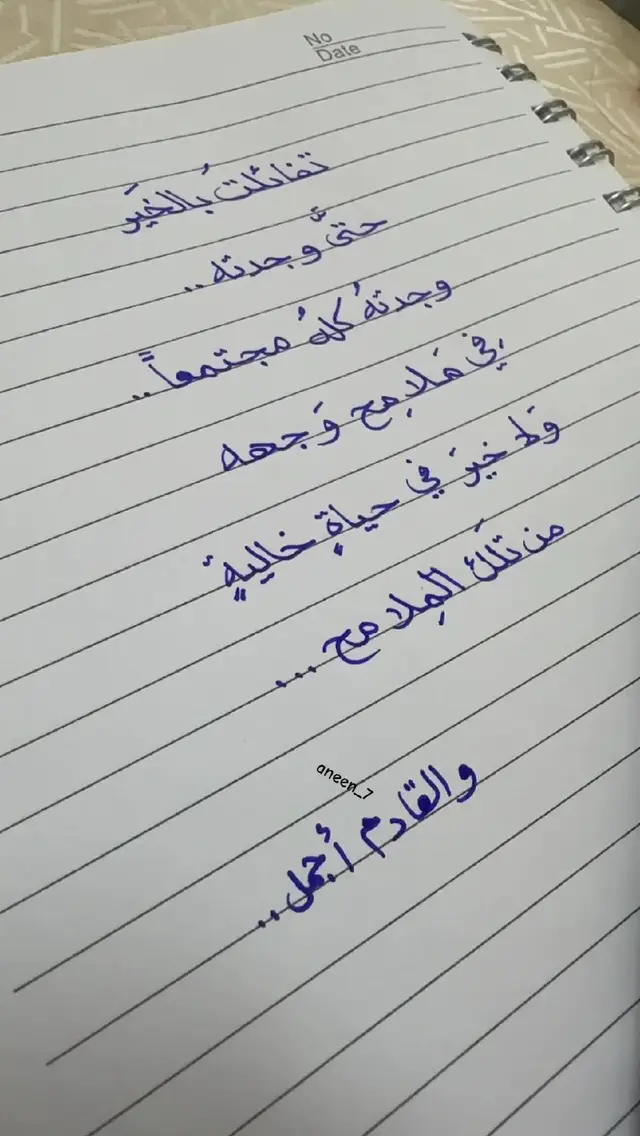 No
Date
تفائلت بُالخيَر
حتىَّ وجدته ..
وجدتهُ كلهُ مجتمعاً ..
فِي مَلامِح وَجهه
ولا خيرَ في حياةٍ خاليةٍ
من تلكَ الملامح ...
aneen_7
والقادم أجمل ..